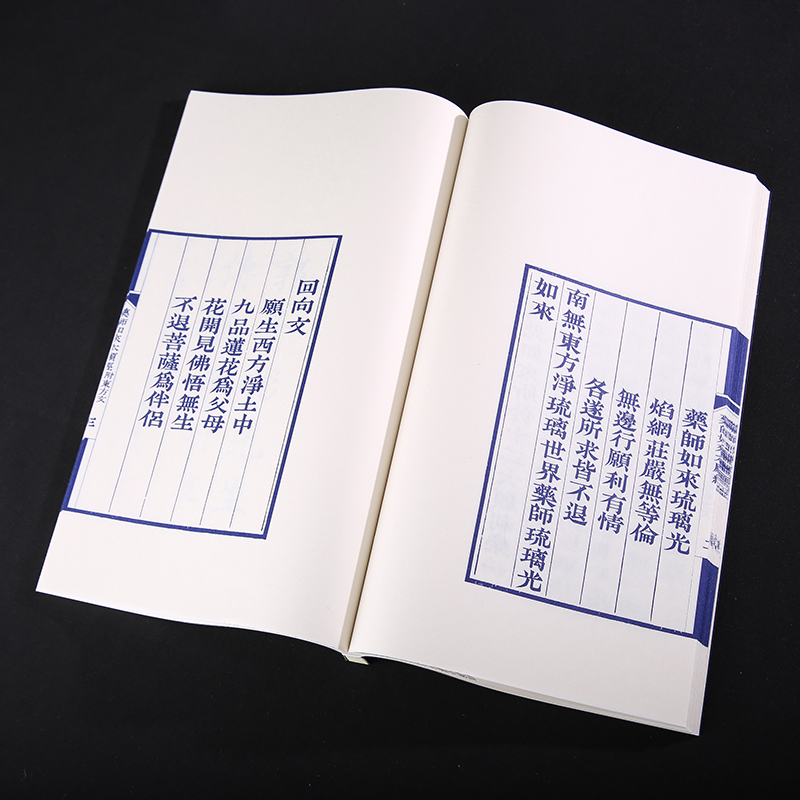 藥師如來琉璃光
焰網莊嚴無等倫
無邊行願利有情
各遂所求皆不退
南無東方淨琉璃世界藥師琉璃光
如來
回向文
願生西方淨土中
九品蓮花為父母
花開見佛悟無生
不退菩薩為伴侶
三